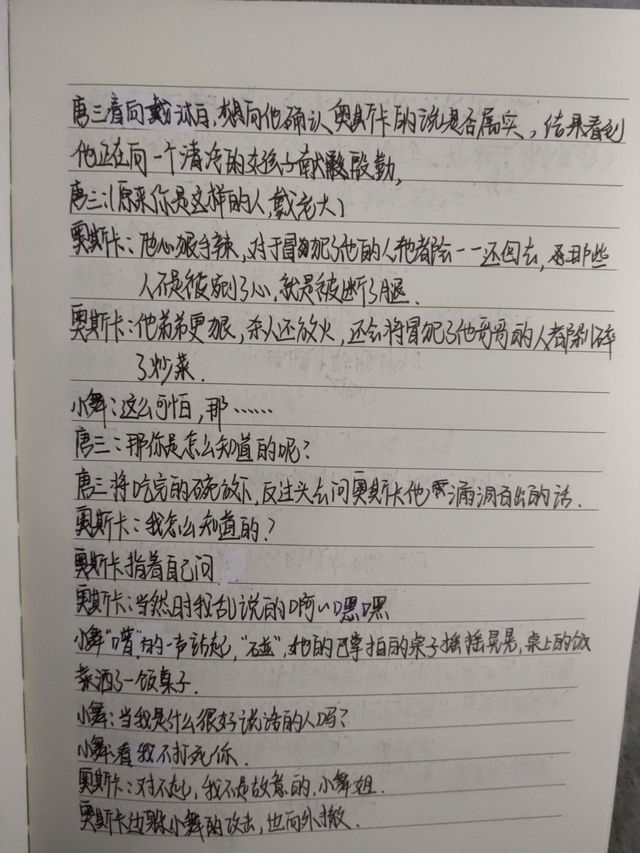 唐三看向戴沐白,想向他确认奥斯卡的说是否属实,结果看到
他正在向一个清冷的女孩子献殷勤,
唐三:(原来你是这样的人,戴老大)
奥斯卡:他心狠手辣,对于冒犯了他的人他都会一一还回去,那些
人不是被剜了心,就是被断了腿.
奥斯卡:他弟弟更狠,杀人还放火,还会将冒犯了他哥哥的人都剁碎
了炒菜.
小舞:这么可怕,那……
唐三:那你是怎么知道的呢?
唐三将吃完的碗放下,反过头去问奥斯卡他漏洞百出的话.
奥斯卡:我怎么知道的?
奥斯卡指着自己问
奥斯卡:当然时我乱说的啊!嘿嘿
小舞"噌"的一声站起,"碰",她的巴掌拍的桌子摇摇晃晃,桌上的饭
菜洒了一饭桌子.
小舞:当我是什么很好说话的人吗?
小舞:看我不打死你.
奥斯卡:对不起,我不是故意的,小舞姐.
奥斯卡边躲小舞的攻击,也向外撤.